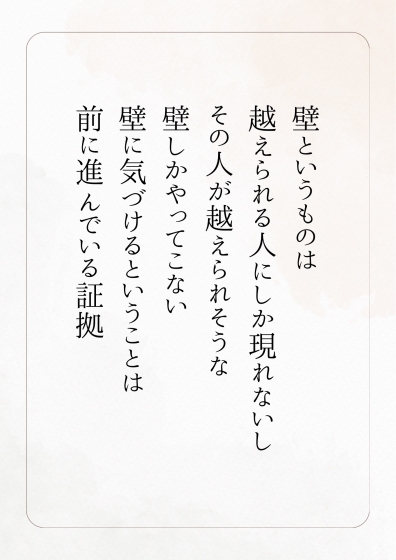 壁というものは
越えられる人にしか現れないし
その人が越えられそうな
壁しかやってこない
壁に気づけるということは
前に進んでいる証拠